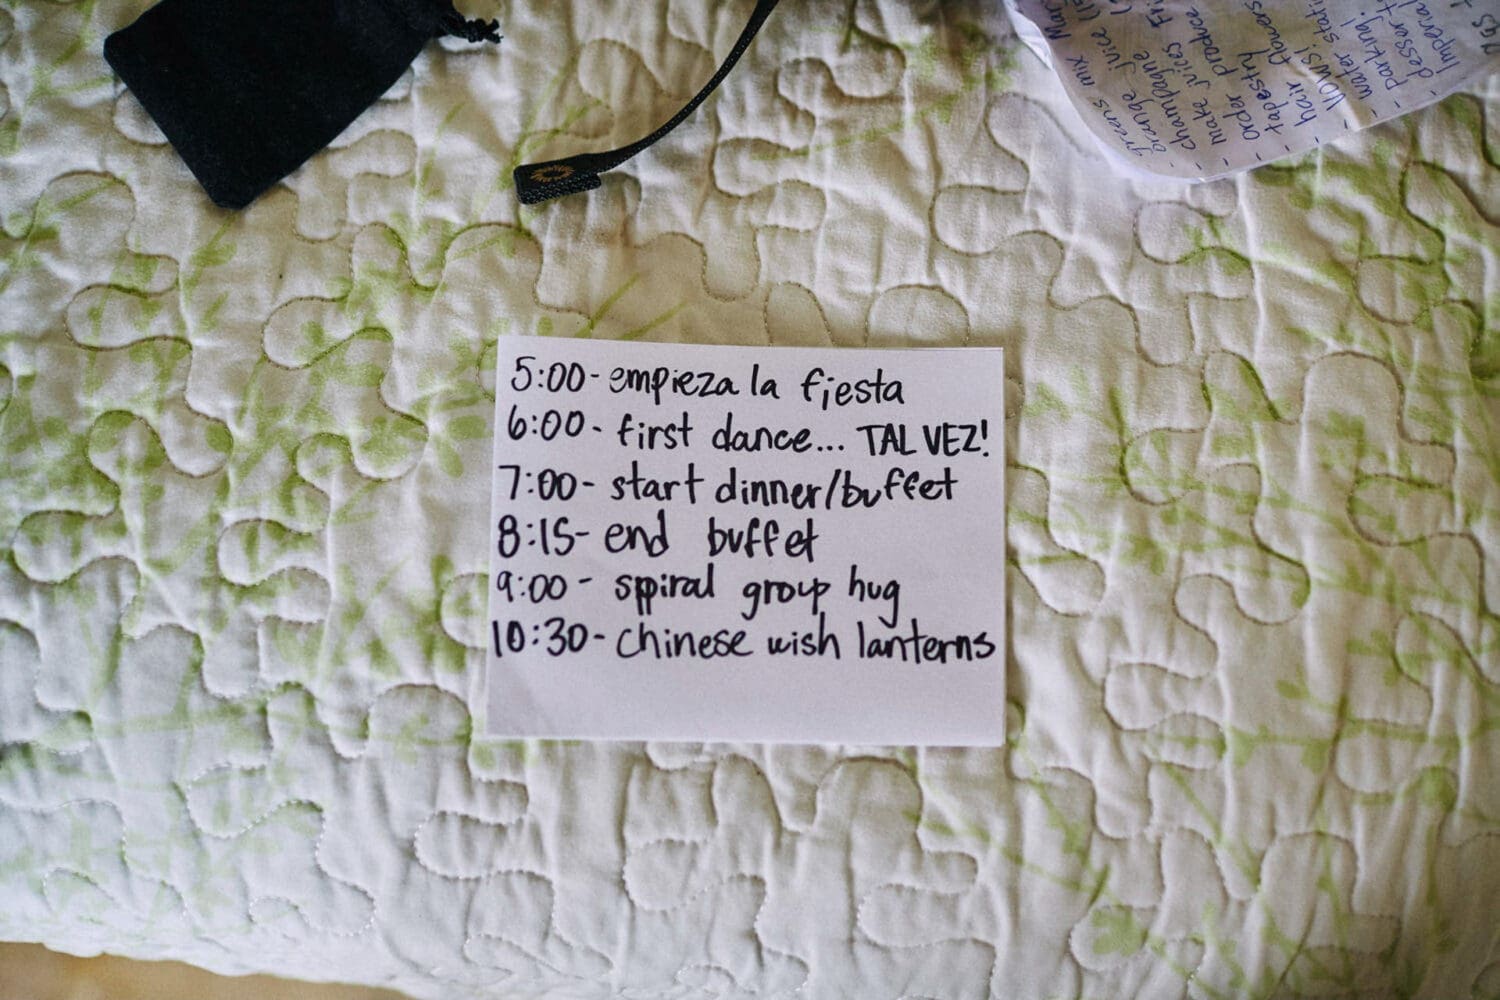 5:00- empieza la fiesta
6:00- first dance... TAL VEZ!
7:00- start dinner/buffet
8:15- end buffet
9:00- spiral group hug
10:30- chinese wish lanterns
greens mix
- orange juice
- champagne
- make juices
- order produce
- tapestry
- hair flowers
- VOWS!
- water stati
- parking!
- desser
- imperial